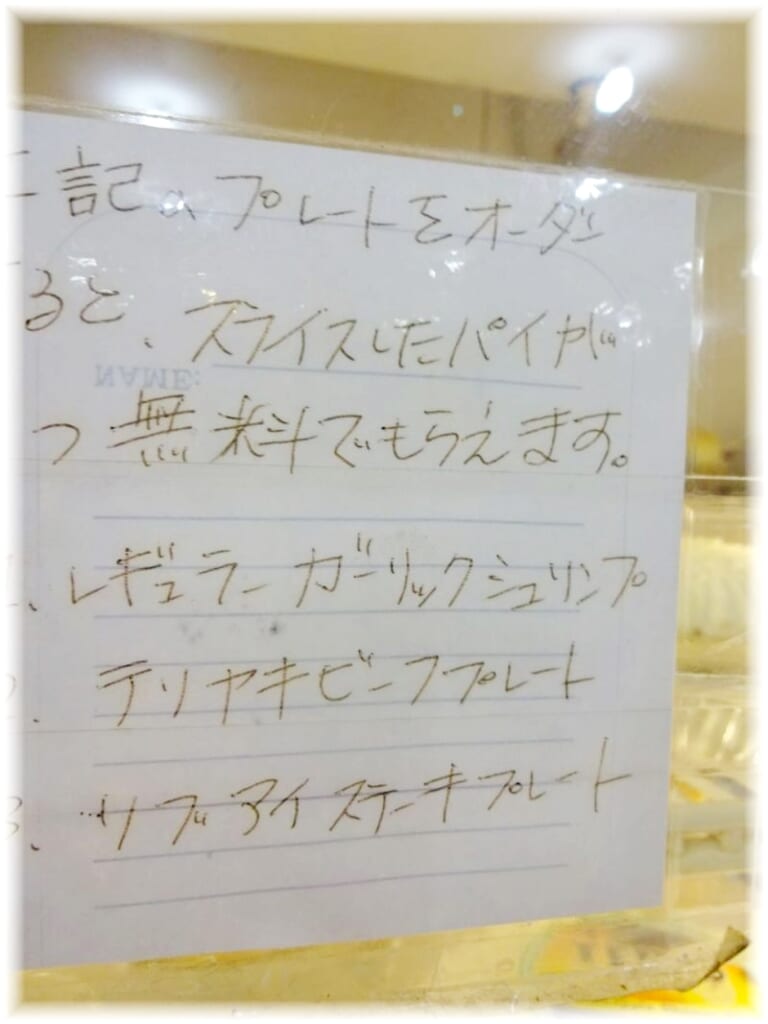 記のプレートをオーダー
ると、スライスしたパイが
つ無料でもらえます。
1、レギュラーガーリックシュリンプ
2、テリヤキビーフプレート
3、リブアイステーキプレート
NAME: